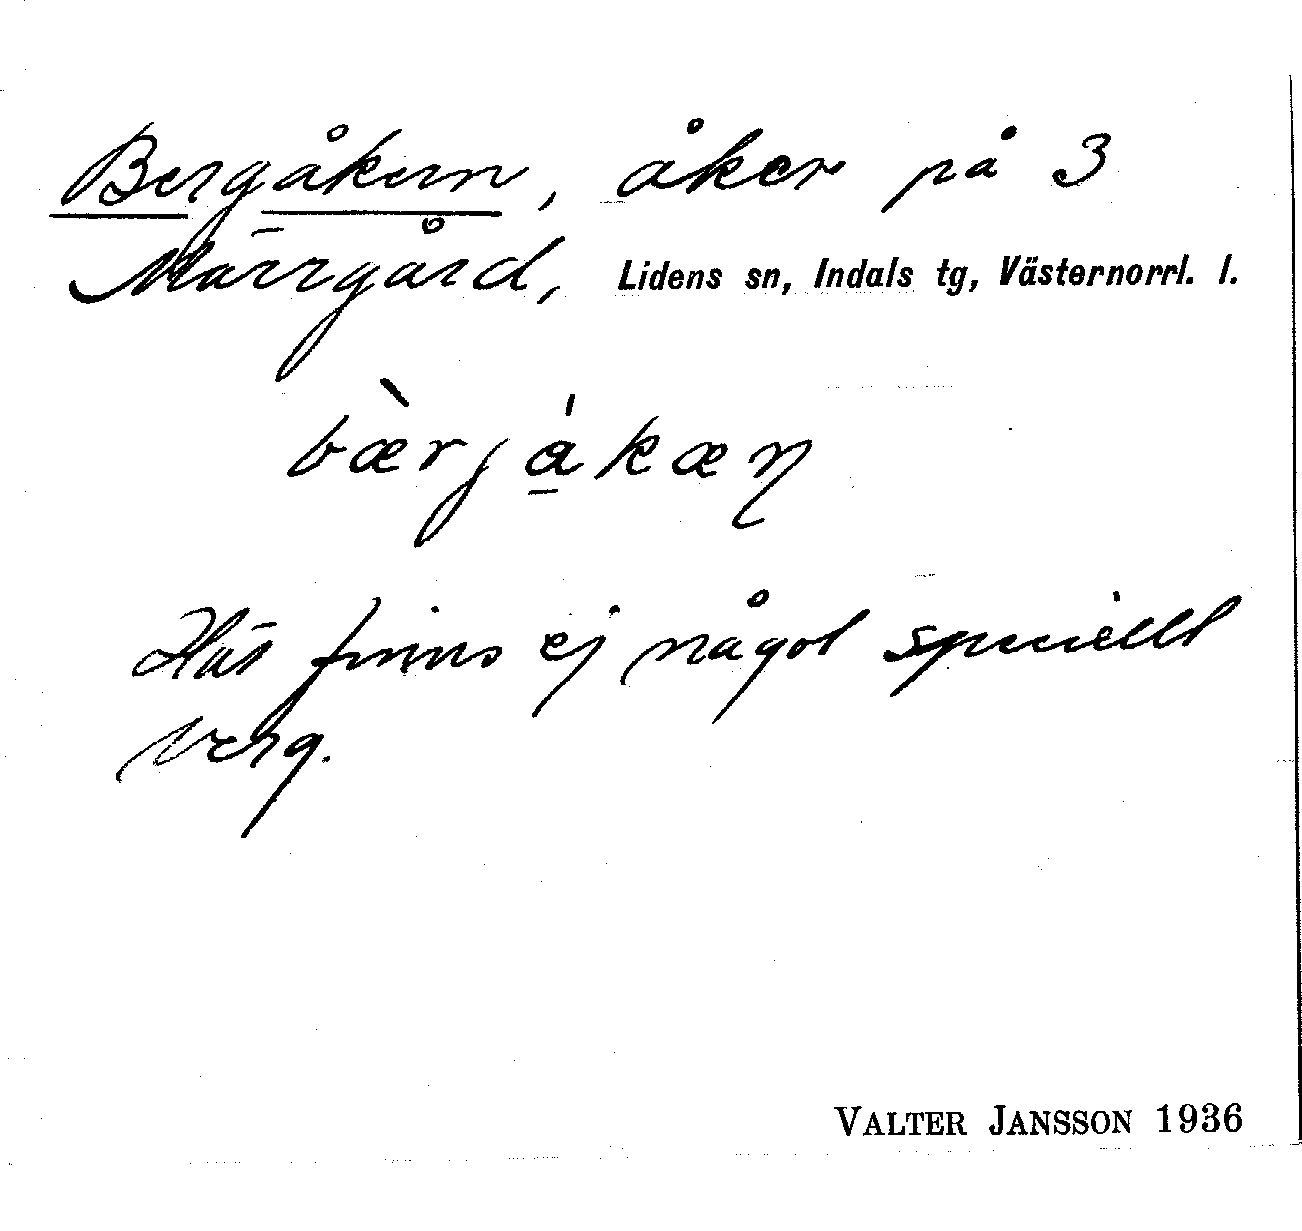 Bergåkern, åker på 3
Märrgård, Lidens sn, Indals tg, Västernorrl. l.
bæ̀rjå̍kæn
Här finns ej något speciellt
berg.
VALTER JANSSON 1936